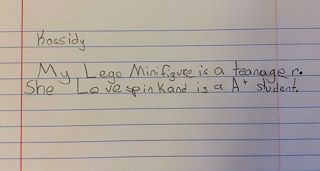 Kassidy
My Lego Minifigure is a teenager.
She Love spin Kand is a A+ student.